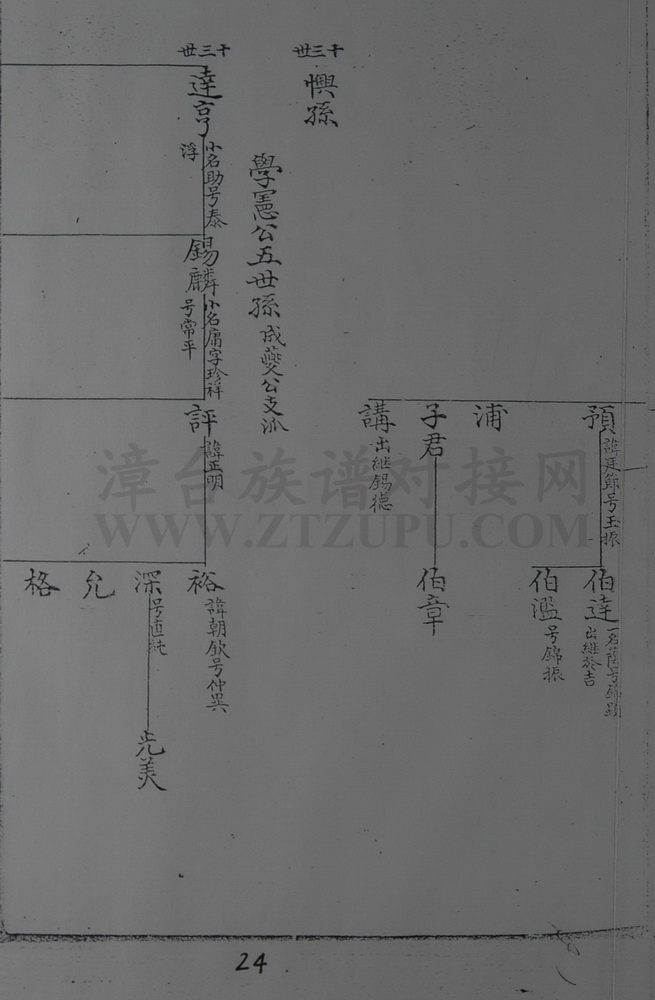 預 諱廷節号玉振
浦
子君
講 出継錫德
伯達 出継於吉
伯濫 号錦振
伯章
十三世
懊孫
學憲公五世孫 成蘷公支派
十三世
達亨 小名助号泰浮
錫麟 小名庸字珍祥号常平
評 諱正明
裕 諱朝欽号仲兴
深 号直
允
格
光美
漳台族谱对接网
WWW.ZTZUPU.COM
24